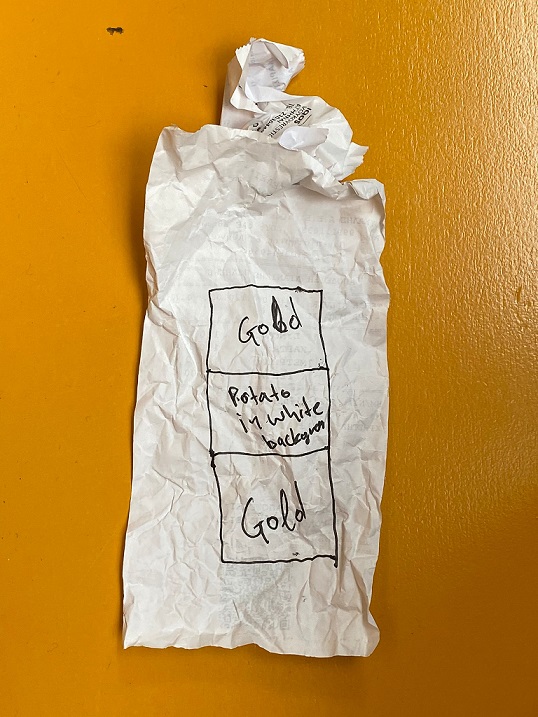 Gold
Potato
in white
backgron
Gold